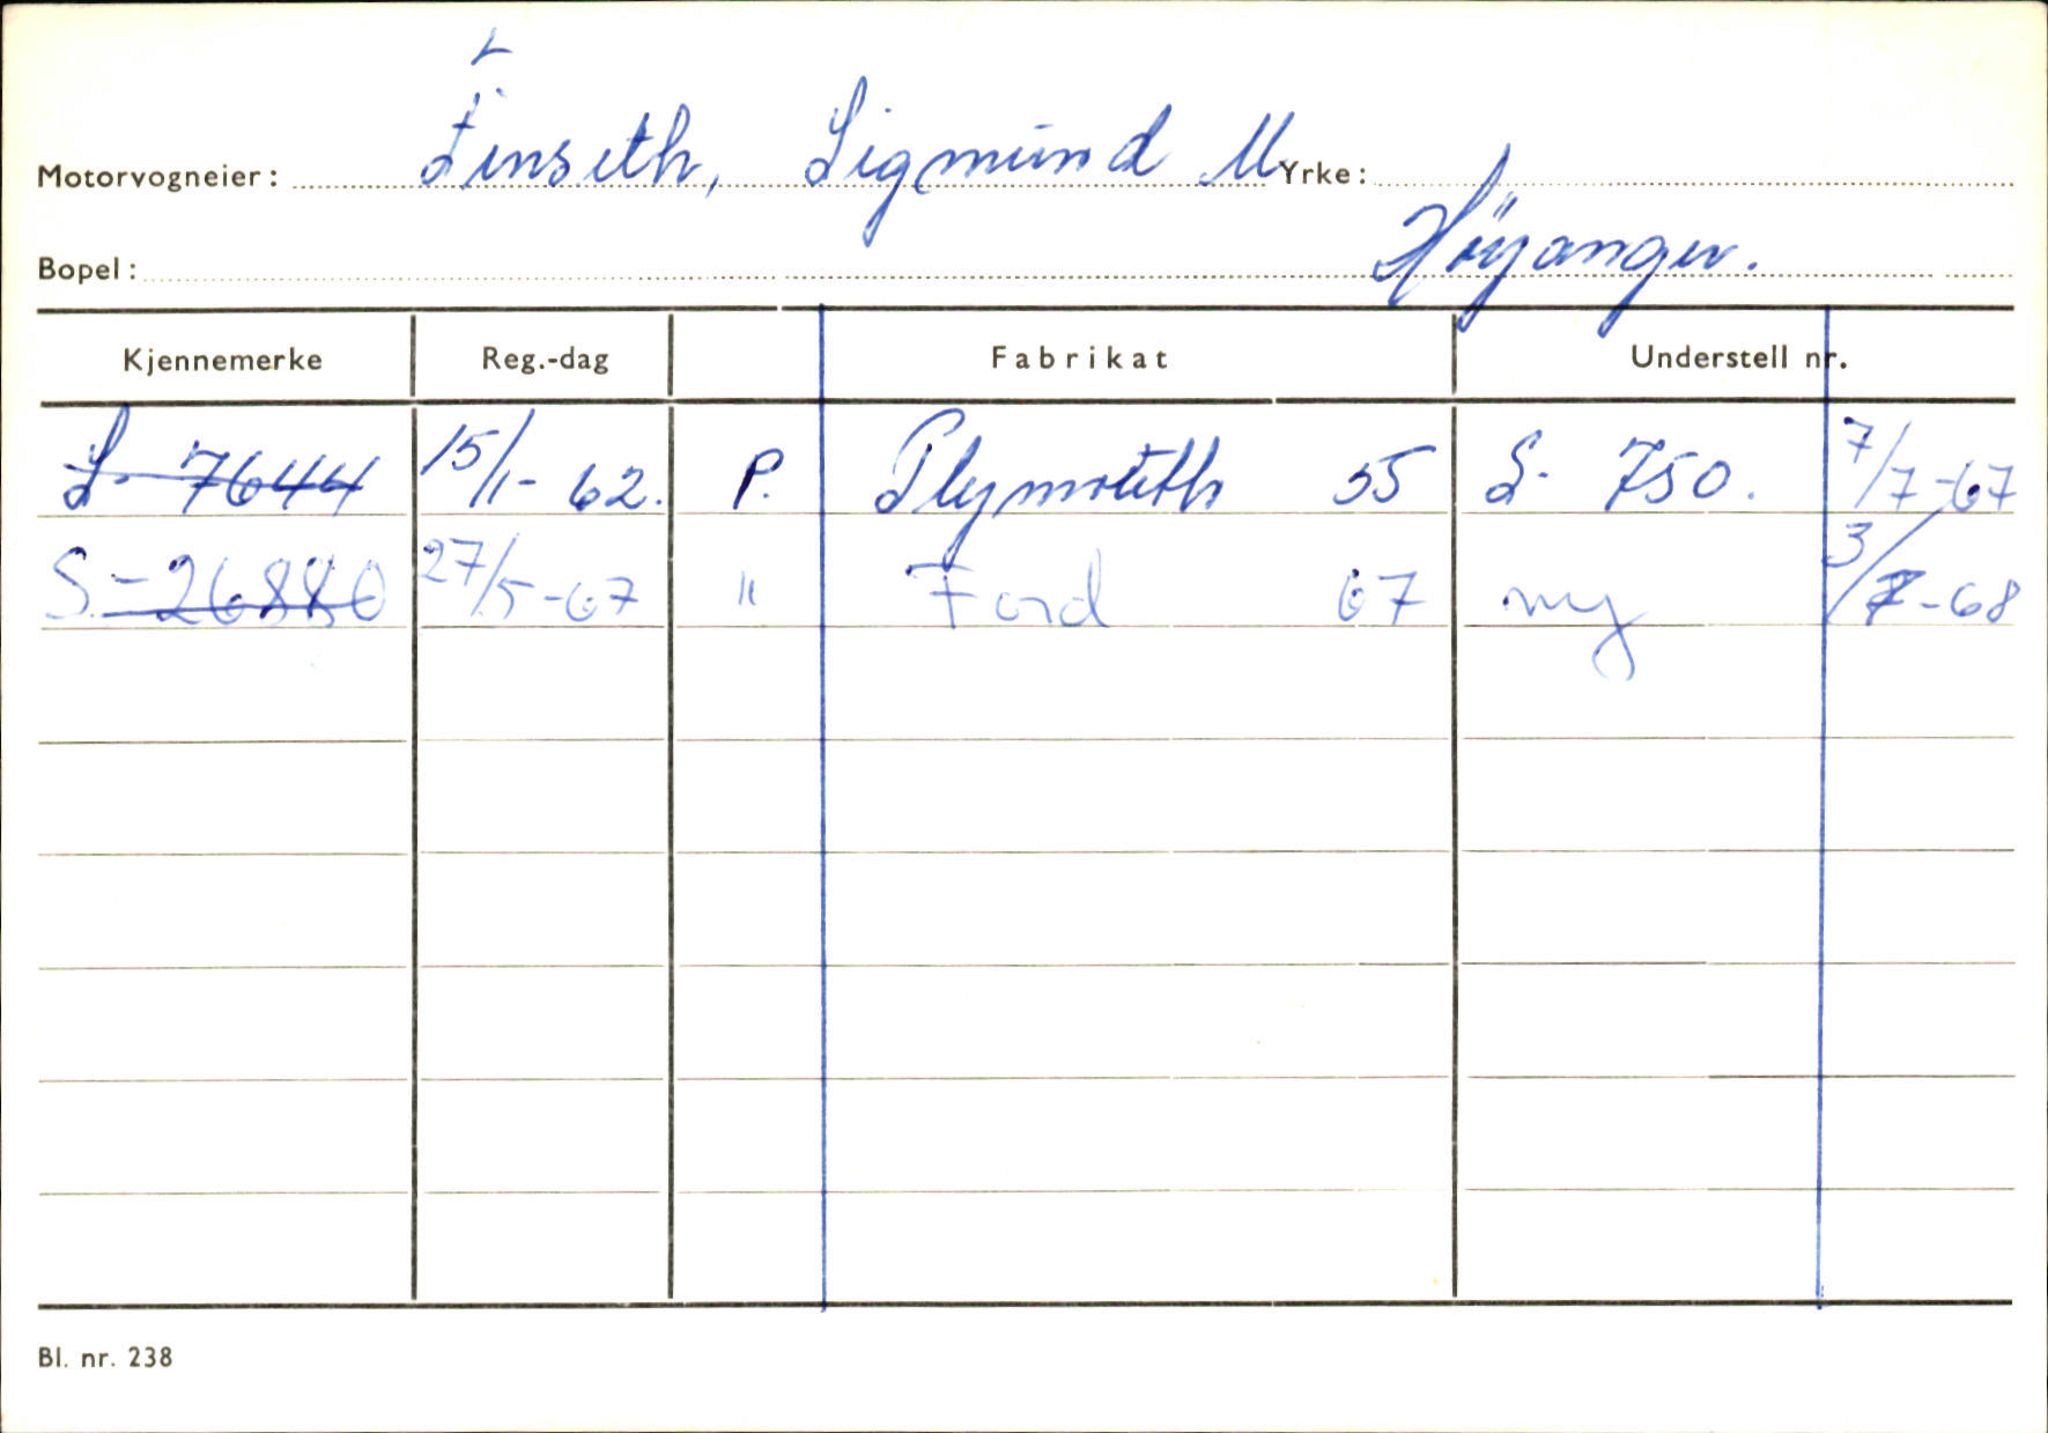 Motorvogneier: Finseth, Sigmund M Yrke:
Bopel: Høyanger.
Kjennemerke Reg.-dag Fabrikat Understell nr.
S- 7644 15/1- 62. P. Plymouth 55 S- 750. 7/7-67
S-26880 27/5-67 " Ford 67 ny 3/7-68
Bl. nr. 238